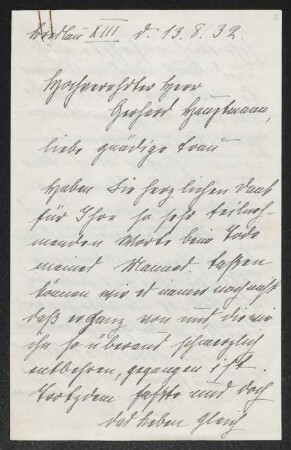 Breslau XIII d. 13.8.32.
Hochverehrter Herr
Gerhard Hauptmann,
liebe gnädige Frau
Haben Sie herzlichen Dank
für Ihre so sehr teilneh-
menden Worte beim Tode
meines Mannes. Fassen
können wir es immer noch nicht
daß er ganz von uns die wir
ihn so überaus schmerzlich
entbehren, gegangen ist.
Trotzdem faßte uns doch
das Leben gleich